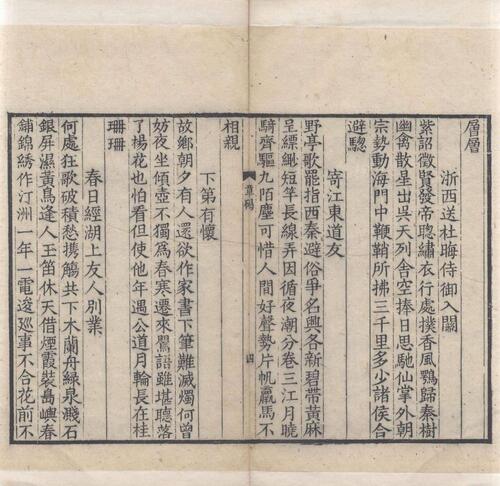 層層
浙西送杜晦侍御入關
紫詔徵賢發帝聰繡衣行處撲香風鶚歸秦樹
幽禽散星出吳天列舍空捧日思馳仙掌外朝
宗勢動海門中鞭鞘所拂三千里多少諸侯合
避驄
寄江東道友
野亭歌罷指西秦避俗爭名興各新碧帶黃麻
呈縹緲短竿長線弄因循夜潮分卷三江月曉
騎齊驅九陌塵可惜人間好聲勢片帆羸馬不
章碣
四
相親
下第有懷
故鄉朝夕有人還欲作家書下筆難滅燭何曾
妨夜坐傾壺不獨為春寒遷來鸎語雖堪聽落
了楊花也怕看但使他年遇公道月輪長在桂
珊珊
春日經湖上友人別業
何處狂歌破積愁攜觴共下木蘭舟綠泉濺石
銀屏濕黃鳥逢人玉笛休天借煙霞裝島嶼春
鋪錦繡作汀洲一年一電逡巡事不合花前不